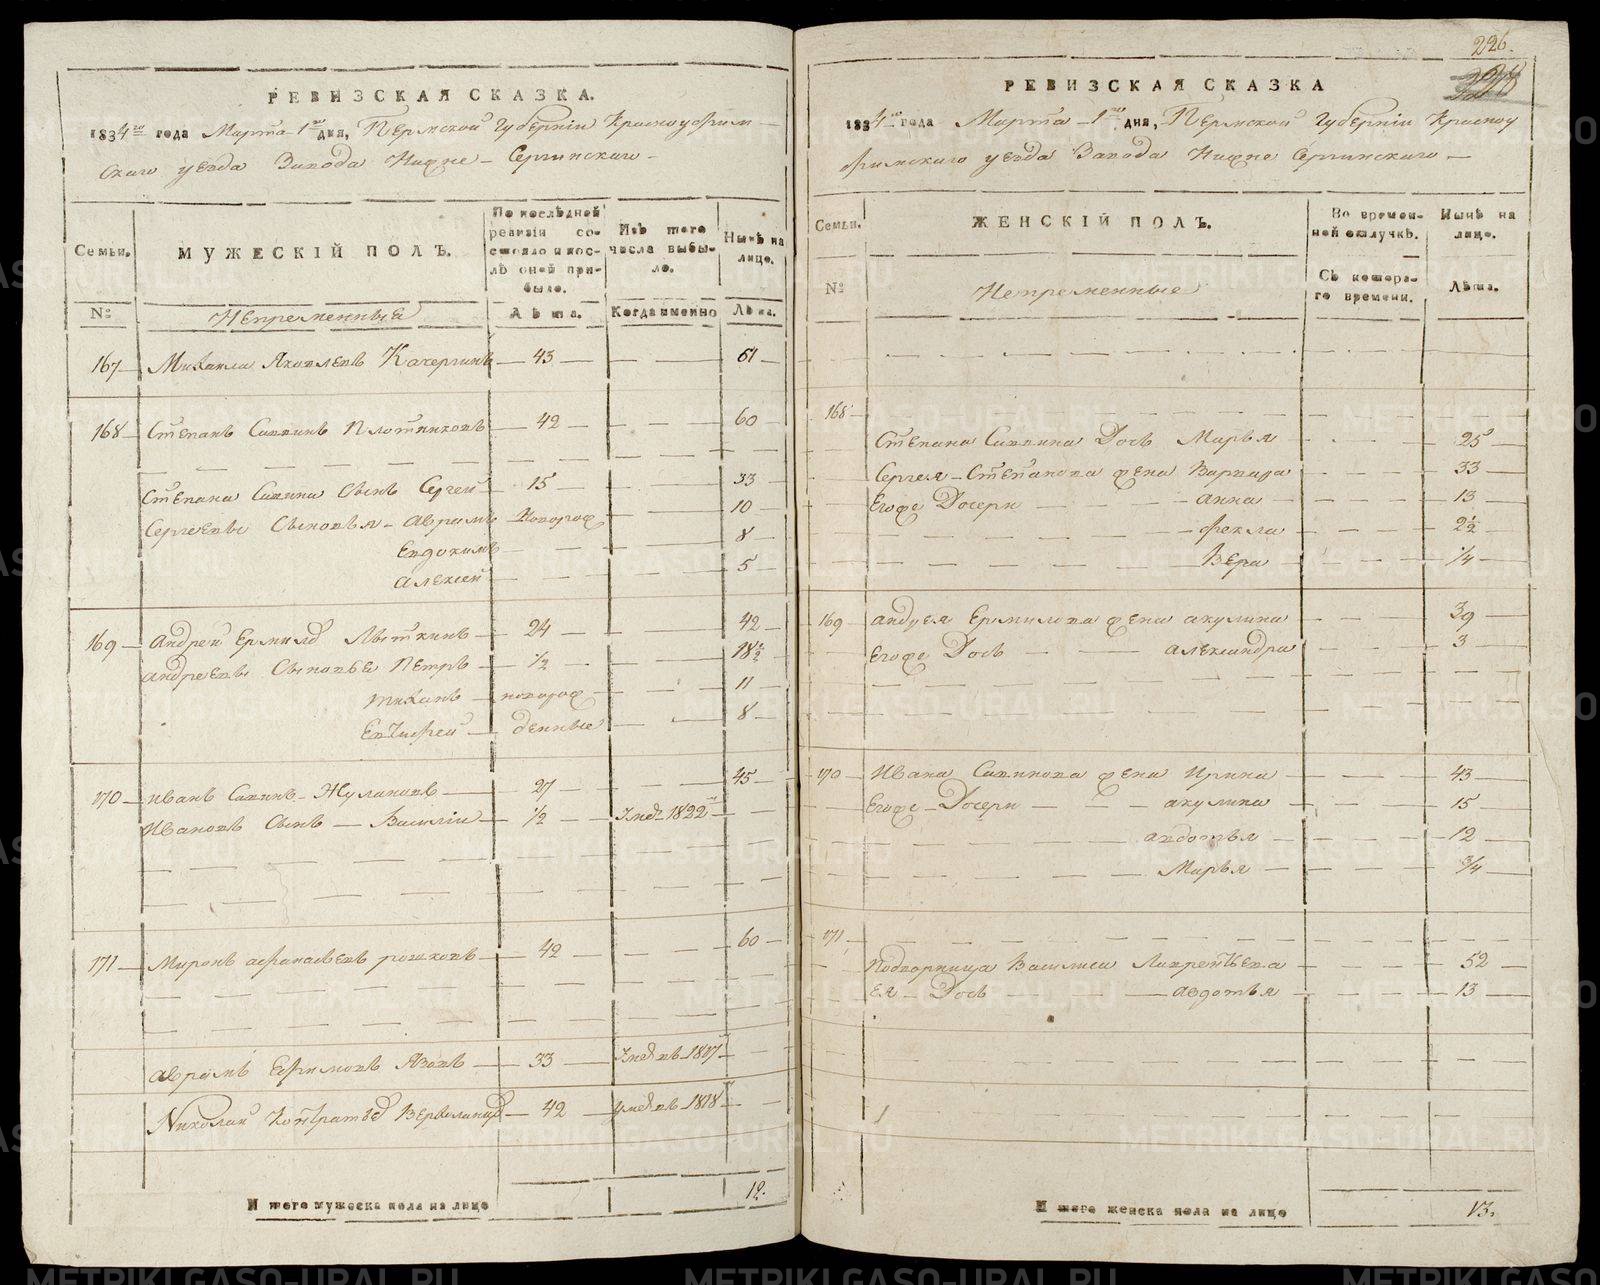 РЕВИЗСКАЯ СКАЗКА.
1834го года Марта 1го дня, Пермской Губерніи Красноуфим-
скаго уезда Завода Нижне-Сергинскаго
Семьи.
МУЖЕСКІЙ ПОЛЪ.
По послѣдней ревизіи состояло и послѣ оной прибыло.
Изъ того числа выбыло.
Нынѣ на лице.
№
Непременныя
Лѣта.
Когда именно
Лѣта.
167 Михаила Яковлевъ Качергинъ 43 61
168 Степанъ Савинъ Плотниковъ 42 60
Степана Савина Сынъ Сергей 15 33
Сергеевы Сыновья Аврамъ новорож 10
Евдокимъ 8
Алексей 5
169 Андрей Ермилов 24 42
Андреевы Сыновье Петръ 1/2 18 1/2
тиханъ новорож 11
денные 8
170 Иванъ Савинъ Жулановъ 27 45
Ивановъ Сынъ Василіи 1/2 1822
171 Миронъ афанасьевъ рошковъ 42 60
аврамъ Ефимовъ Язовъ 33 1817
Николай 42 1818
И того мужеска пола на лице 12.
226.
РЕВИЗСКАЯ СКАЗКА
1834го года Марта 1го дня, Пермской Губерніи Красноу
фимскаго уезда Завода Нижне Сергинскаго
Семьи.
ЖЕНСКІЙ ПОЛЪ.
Во временной отлучкѣ.
Нынѣ на лице.
№
Непременные
Съ котораго времени.
Лѣта.
168
Степана Савина Дочь Марья 25
Сергея Степанова жена Варвара 33
Егоже Дочери анна 13
фекла 2 1/2
Вера 1/4
169 андрея Ермилова жена акулина 39
Егоже Дочь александра 3
170 Ивана Савинова жена Ирина 43
Егоже Дочери акулина 15
авдотья 12
Марья 3/4
171
Подворница Василиса Лаврентьева 52
ея Дочь авдотья 13
И того женска пола на лице 13.
METRIKI.GASO-URAL.RU